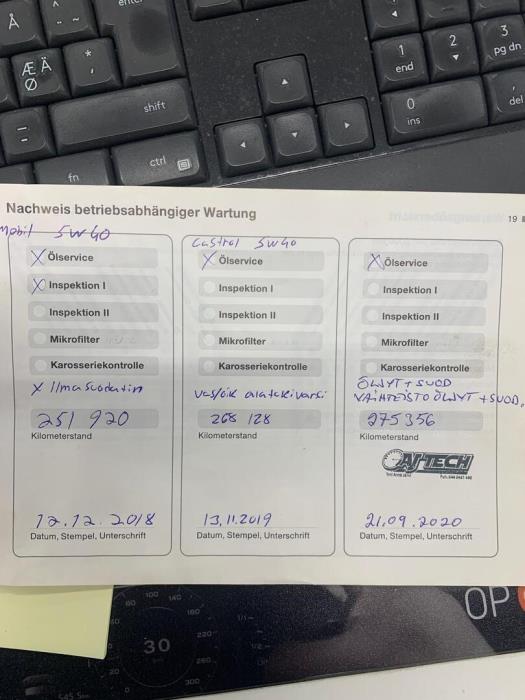 Å
Æ Ä
Ø
*
'
shift
ctrl
fn
1
end
2
3
pg dn
0
ins
del
Nachweis betriebsabhängiger Wartung
19
Mobil 5w40
X Ölservice
X Inspektion I
Inspektion II
Mikrofilter
Karosseriekontrolle
X Ilmasuodatin
251 920
Kilometerstand
12.12.2018
Datum, Stempel, Unterschrift
Castrol 5w40
X Ölservice
Inspektion I
Inspektion II
Mikrofilter
Karosseriekontrolle
Vas/oik alatukivarsi
268 128
Kilometerstand
13.11.2019
Datum, Stempel, Unterschrift
X Ölservice
Inspektion I
Inspektion II
Mikrofilter
Karosseriekontrolle
ÖLJYT + SUOD
VAIHTEISTO ÖLJYT + SUOD.
275356
Kilometerstand
AJ-TECH
21.09.2020
Datum, Stempel, Unterschrift
OP
100
140
80
160
60
220
30
1/2
260
20
300
0